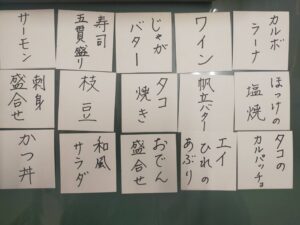 カルボ
ラーナ
ワイン
じゃが
バター
寿司
五貫盛り
サーモン
ほっけの
塩焼
帆立バター
タコ
焼き
枝豆
刺身
盛合せ
タコの
カルパッチョ
エイ
ひれの
あぶり
おでん
盛合せ
和風
サラダ
かつ丼